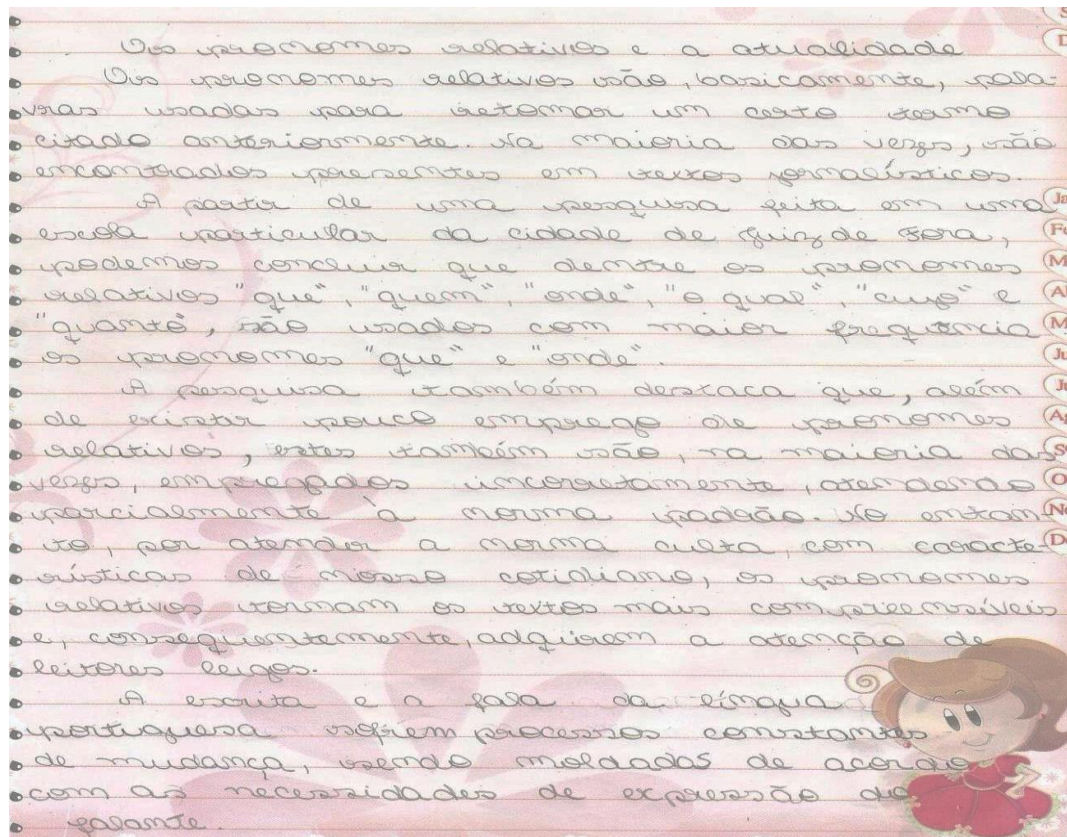 Os pronomes relativos e a atualidade
Os pronomes relativos são, basicamente, pala-
vras usadas para retomar um certo termo
citado anteriormente. Na maioria das vezes, são
encontrados presentes em textos jornalísticos.
A partir de uma pesquisa feita em uma
escola particular da cidade de Juiz de Fora,
podemos concluir que dentre os pronomes
relativos "que", "quem", "onde", "o qual", "cujo" e
"quanto", são usados com maior frequência
os pronomes "que" e "onde".
A pesquisa também destaca que, além
de existir pouco emprego de pronomes
relativos, estes também são, na maioria das
vezes, empregados incorretamente, atendendo
parcialmente à norma padrão. No entan
to, por atender a norma culta, com caracte-
rísticas de nosso cotidiano, os pronomes
relativos tornam os textos mais compreensíveis
e, consequentemente, adquirem a atenção de
leitores leigos.
A escrita e a fala da língua
portuguesa sofrem processos constantes
de mudança, sendo moldadas de acordo
com as necessidades de expressão do
falante.
D
Ja
Fe
M
A
M
Ju
Ju
Ag
S
O
No
D